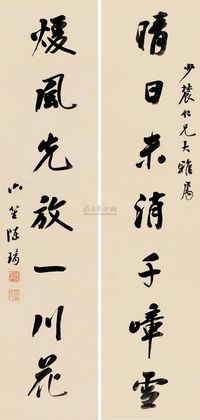 少農仁兄大雅属
晴日未消千嶂雪
煖風先放一川花
六笙陈璚